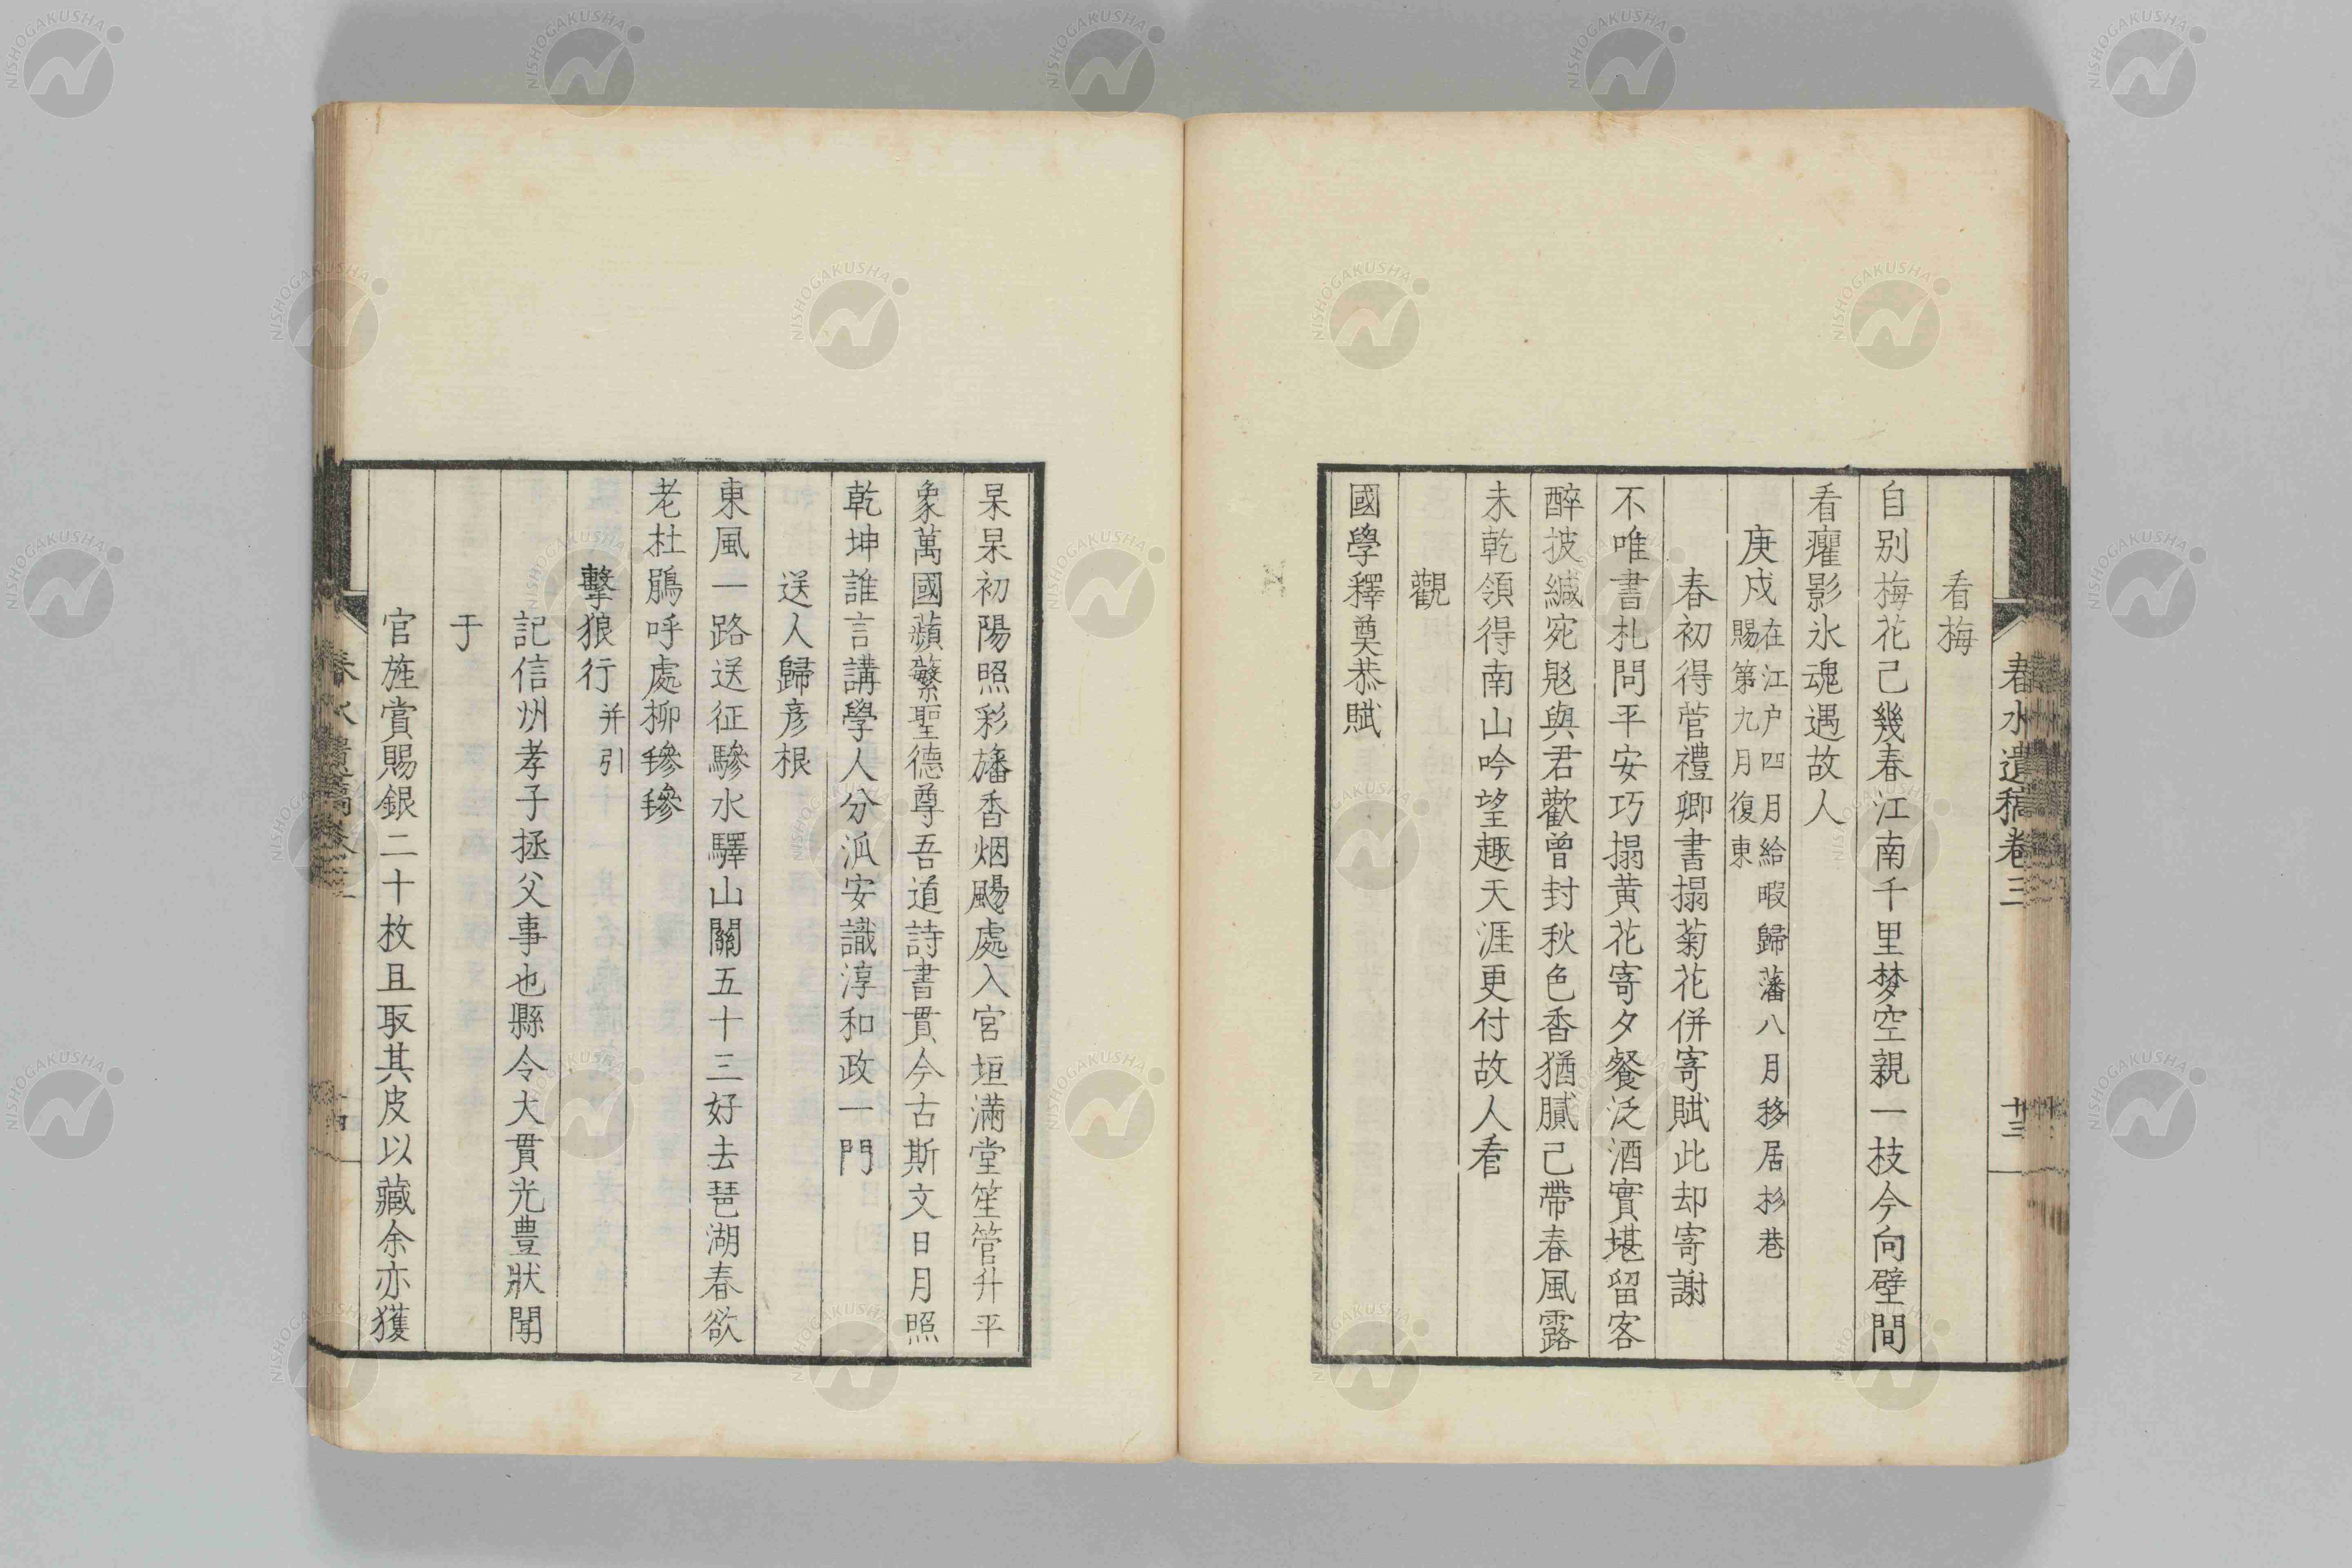 春水遺稿卷三
十三
看梅
自別梅花己幾春江南千里梦空親一枝今向壁間
看癯影氷魂遇故人
庚戌在江户四月給暇歸藩八月移居杉巷
賜第九月復東
春初得菅禮卿書搨菊花併寄賦此却寄謝
不唯書札問平安巧搨黄花寄夕餐泛酒實堪留客
醉披緘宛見與君歡曾封秋色香猶膩己帶春風露
未乾領得南山吟望趣天涯更付故人看
觀
國學釋奠恭賦
杲杲初陽照彩旛香烟颺處入宮垣滿堂笙管升平
象萬國蘋蘩聖德尊吾道詩書貫今古斯文日月照
乾坤誰言講學人分派安識淳和政一門
送人歸彦根
東風一路送征驂水驛山關五十三好去琶湖春欲
老杜鵑呼處柳毿毿
擊狼行并引
記信州孝子拯父事也縣令大貫光豊狀聞
于
官旌賞賜銀二十枚且取其皮以藏余亦獲
春水遺稿卷三
十四
NISHOGAKUSHA